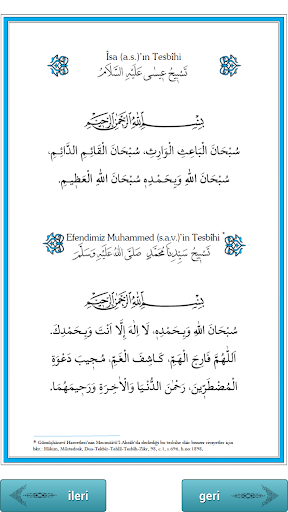 Îsa (a.s.)'ın Tesbîhi
تَسْبِيحُ عِيسٰى عَلَيْهِ السَّلَامُ
بِسْمِ اللهِ الرَّحْمٰنِ الرَّحِيمِ
سُبْحَانَ الْبَاعِثِ الْوَارِثِ، سُبْحَانَ الْقَائِمِ الدَّائِمِ،
سُبْحَانَ اللهِ وَبِحَمْدِهِ سُبْحَانَ اللهِ الْعَظِيمِ.
Efendimiz Muhammed (s.a.v.)'in Tesbîhi *
تَسْبِيحُ سَيِّدِنَا مُحَمَّدٍ صَلَّى اللهُ عَلَيْهِ وَسَلَّمَ
بِسْمِ اللهِ الرَّحْمٰنِ الرَّحِيمِ
سُبْحَانَ اللهِ وَبِحَمْدِهِ، لَا اِلٰهَ اِلَّا اَنْتَ وَبِحَمْدِكَ.
اَللّٰهُمَّ فَارِجَ الْهَمِّ، كَاشِفَ الْغَمِّ، مُجِيبَ دَعْوَةِ
الْمُضْطَرِّينَ، رَحْمٰنَ الدُّنْيَا وَالْاٰخِرَةِ وَرَحِيمَهُمَا.
* Gümüşhânevî Hazretleri'nin Mecmûatü'l-Ahzâb'da zikrettiği bu tesbihe olan benzer rivayetler için
bkz.: Hâkim, Müstedrek, Dua-Tekbir-Tehlîl-Tesbîh-Zikr, 98, c.1, s.696, h.no:1898,
ileri
geri